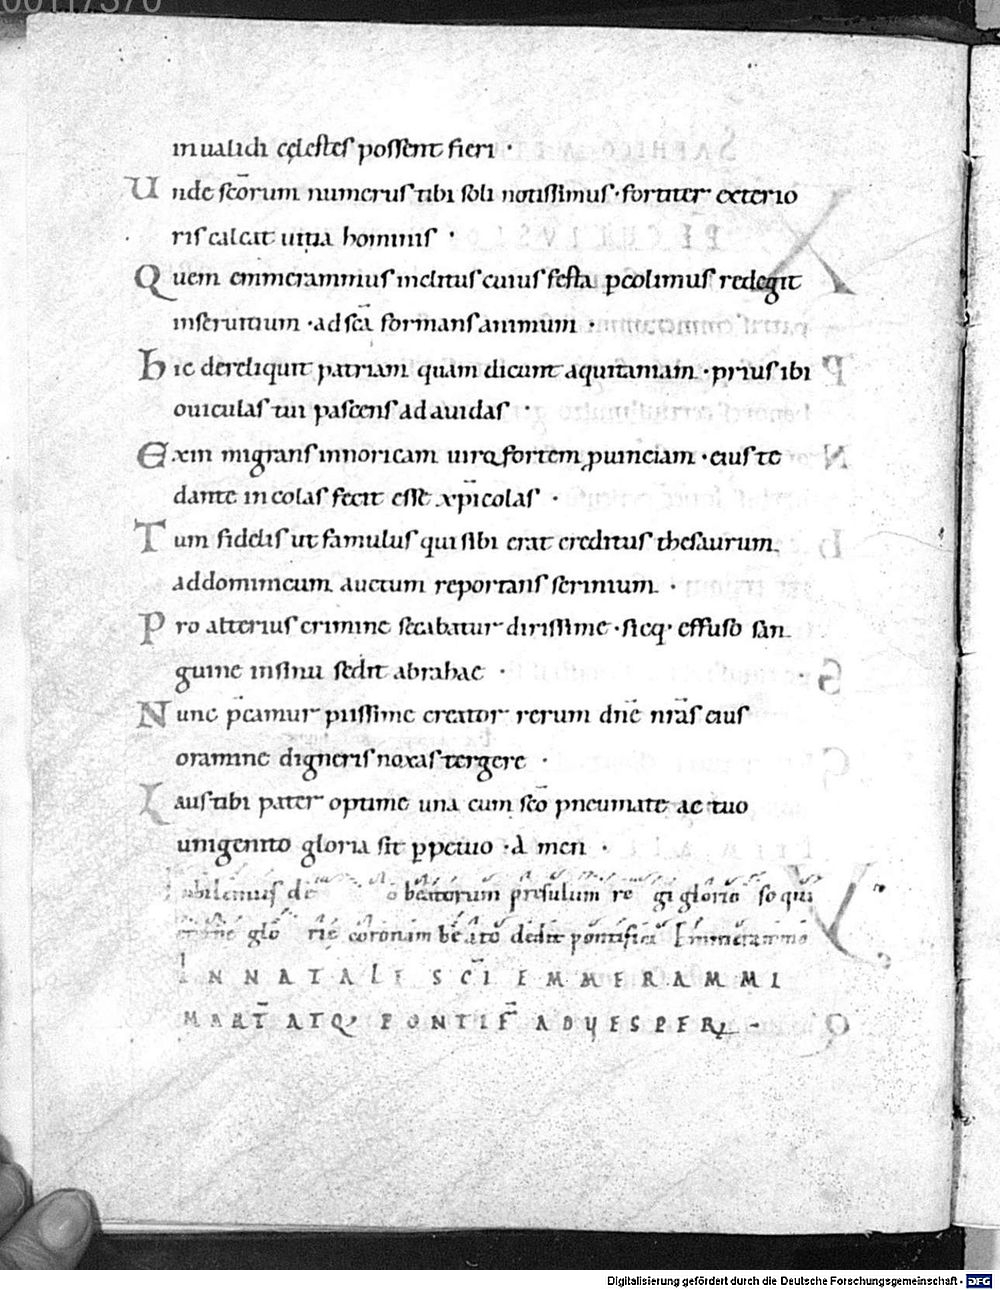 inualidi cęlestes possent fieri ·
Unde scōrum numerus tibi soli notissimus · fortiter exterio
ris calcat uitia hominis ·
Quem emmerammus inclitus cuius festa ꝑcolimus redegit
inseruitium · ad scā formans animum ·
hic dereliquit patriam quam dicunt aquitaniam · prius ibi
ouiculas tui pascens ad auidas ·
Exin migrans innoricam uirꝙ fortem ꝓuinciam · eius te
dante incolas fecit esse xp̄icolas ·
Tum fidelis ut famulus qui sibi erat creditus thesaurum
addominicum auctum reportans scrinium ·
Pro alterius crimine secabatur dirissime · sicq· effuso san
guine insinu sedit abrahae ·
Nunc p̄camur piissime creator rerum dn̄e nr̄as eius
oramine digneris noxas tergere ·
Laus tibi pater optime una cum sc̄o pneumate ac tuo
unigenito gloria sit ꝑpetuo · A men ·
beatorum presulum re gi glorię so qui
glo rię coronam beato dedit pontifici Emmerammo
INNATALE SC̄I EMMERAMMI
MART̄ ATQ· PONTIF̄ ADUESPERĀ
Digitalisierung gefördert durch die Deutsche Forschungsgemeinschaft - DFG